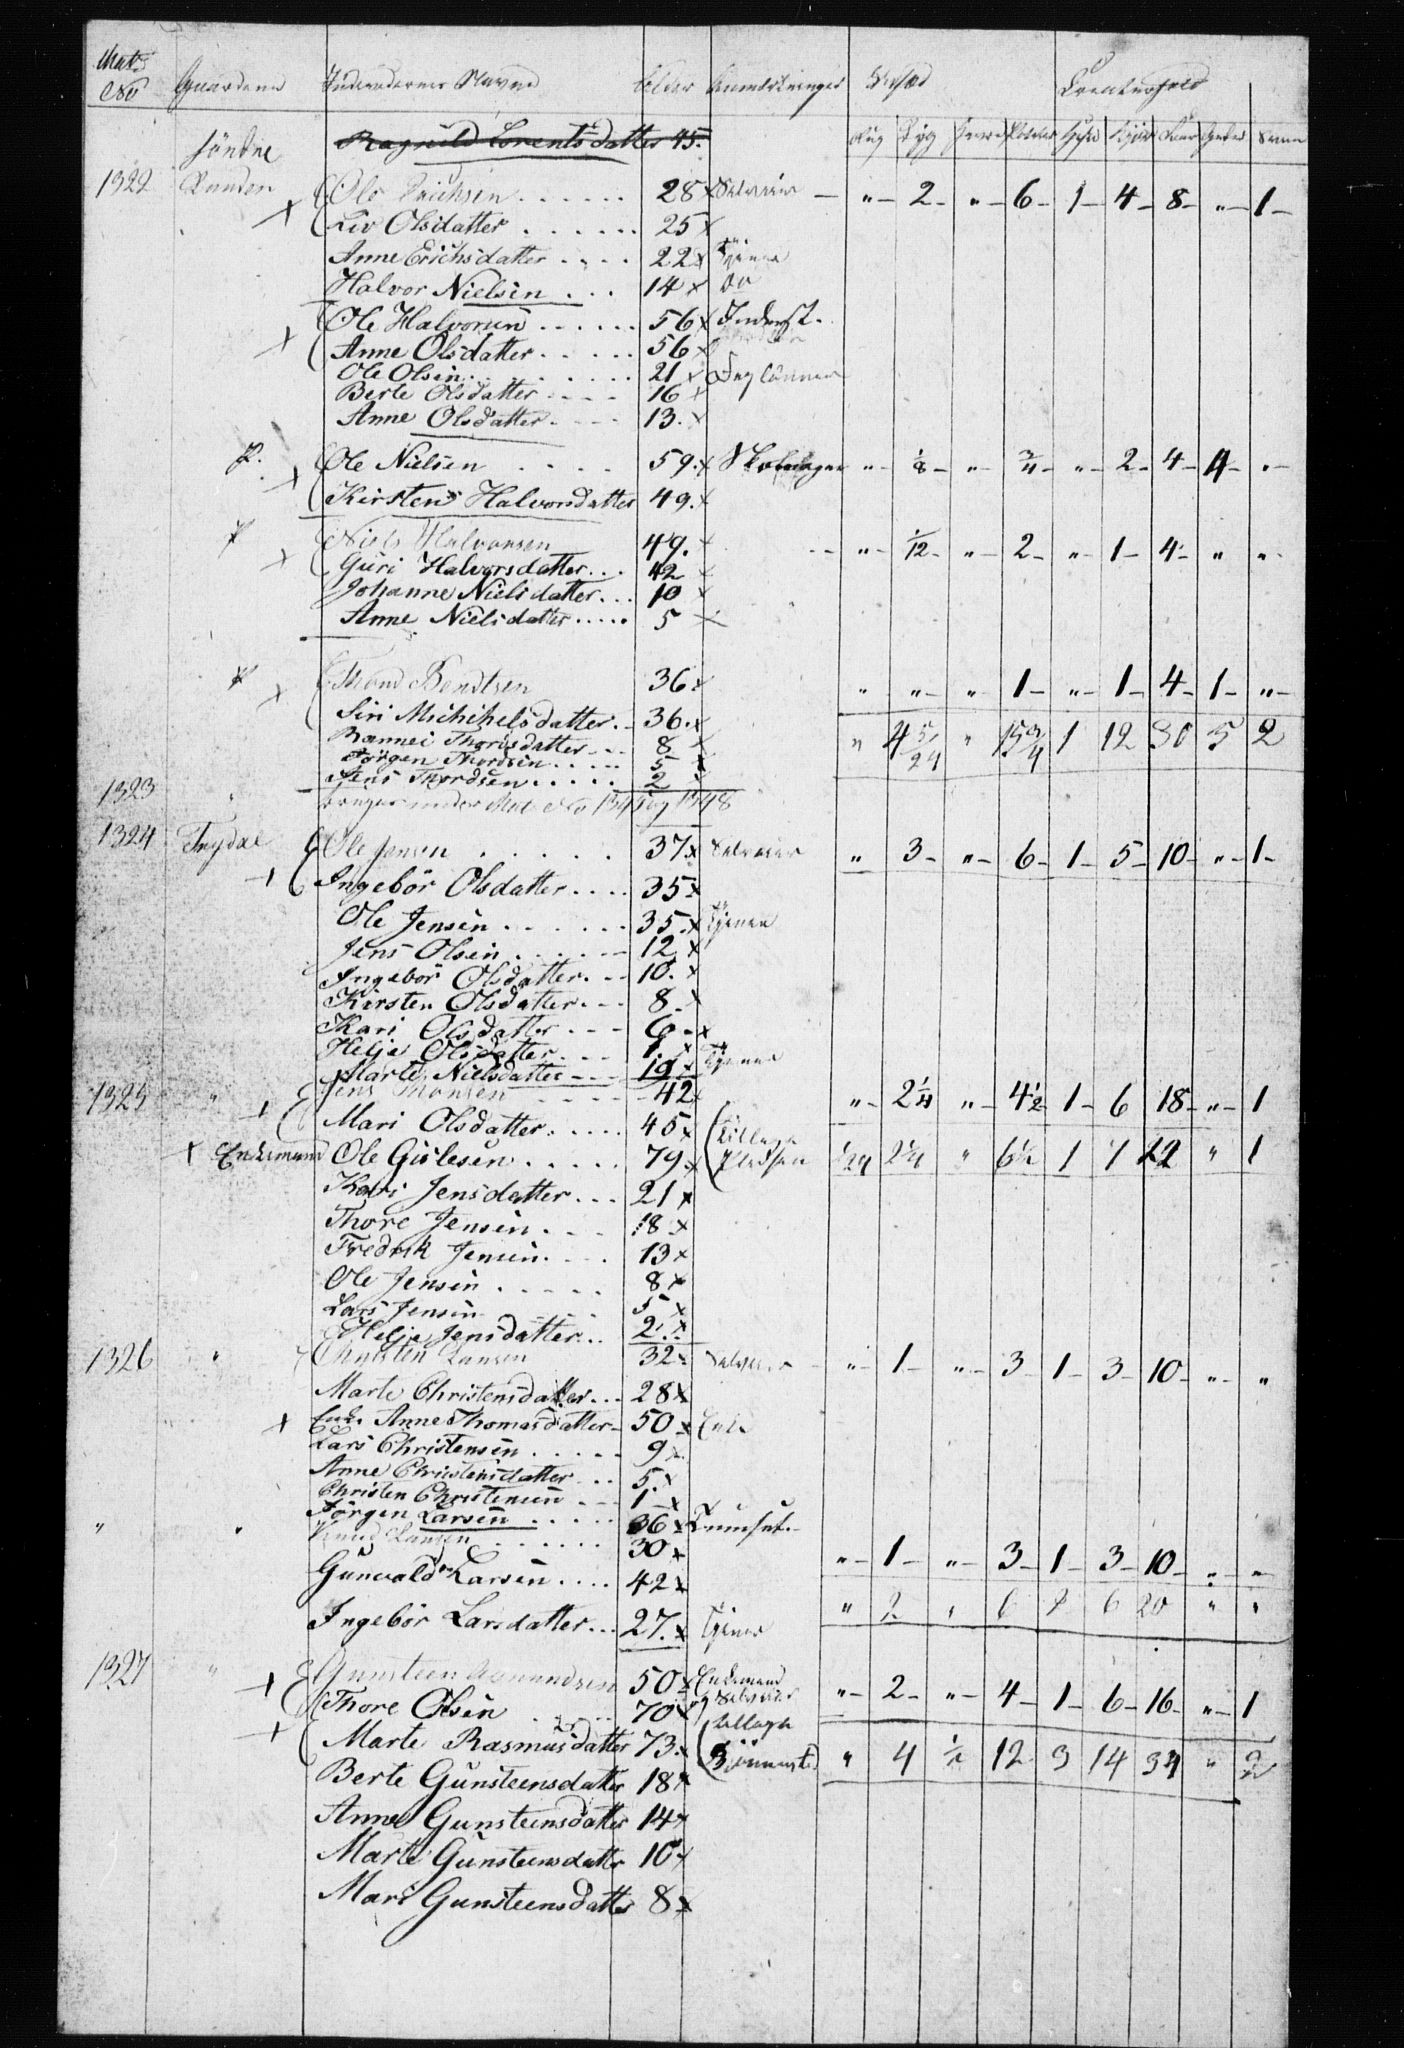 Mat. No Gaardene Indvaanernes Navne Alder Anmærkninger Udsæd Creaturhold
Rug Byg Heste Kiør Faar Sviin
Ragnild Lorentsdatter 45.
Søndre
1322 Runden Ole Erichsen . . . . . . 28 x Selveier " 2 " 6 1 4 8 " 1
Liv Olsdatter . . . . . . 25 x
Anne Erichsdatter . . . . 22 x Tjener
Halvor Nielsen . . . 14 x Do
Ole Halvorsen . . . . . . 56 x Inderst.
Anne Olsdatter . . . . . 56 x
Ole Olsen . . . . . . . 21 x Daglønner
Berte Olsdatter . . . . 16 x
Anne Olsdatter . . . . 13. x
P. Ole Nielsen . . . . 59. x " 1/8 " 3/4 " 2 4 4 "
Kirsten Halvorsdatter 49. x
P Niels Halvorsen 49. x " 1/12 " 2 " 1 4 " "
Guri Halvorsdatter . . . 42 x
Johanne Nielsdatter . . . 10 x
Anne Nielsdatter . . . . . 5 x
P Thord Bendtsen 36 x " " " 1 " 1 4 1 "
Siri Michkelsdatter . . 36. x " 4 5/24 " 15 3/4 1 12 30 5 2
Thorisdatter . . . 8 x
Jørgen Thordsen . . . . . 5 x
Jens Thordsen . . . . . 2 x
1323 " bruges under Mat. No 1345 og 1348
1324 Frydal Ole Jensen . . . . . 37 x Selveier " 3 " 6 1 5 10 " 1
Ingebor Olsdatter . . . . 35 x
Ole Jensen . . . . . . 35. x Tjener
Jens Olsen . . . . . . 12 x
Ingebor Olsdatter . . . 10. x
Kirsten Olsdatter . . . 8. x
Kari Olsdatter . . . 6 x
Helje Olsdatter . . . 1. x
Marte Nielsdatter . . . 19 x Tjener
1325 " Jens Monsen . . . . 42 x " 2 1/4 " 4 1/2 1 6 18 " 1
Mari Olsdatter . . . . . 45 x
x Enkemand Ole Gislesen . . . . . 79 x Pladsen 1/24 2 1/4 " 6 1/2 1 7 22 " 1
Kari Jensdatter . . . 21 x
Thore Jensen . . . . 18 x
Fredrik Jensen . . . . 13 x
Ole Jensen . . . . . 8 x
Lars Jensen . . . 5 x
Helje Jensdatter . . 2 x
1326 " Christen Larsen 32 x Selveier " 1 " 3 1 3 10 " "
Marte Christensdatter . . . 28 x
Enke Anne Thomasdatter 50 x Enke
Lars Christensen . . . . . 9 x
Anne Christensdatter . . . 5. x
Christen Christensen . . . 1 x
Jørgen Larsen . . . . . 36 x
" " Knud Larsen . . . . . . 30 x " 1 " 3 1 3 10 " "
Gunvald Larsen . . . . 42 x
Ingebor Larsdatter . . . 27. x Tjener " 2 " 6 2 6 20 " "
1327 " Gunsteen Amundsen 50 x Enkemand Selveier " 2 " 4 1 6 16 " 1
Thore Olsen . . . . 70 x
Marte Rasmusdatter 73. x " 4 1/2 12 3 14 34 " 2
Berte Gunsteensdatter 18 x
Anne Gunsteensdatter 14 x
Marte Gunsteensdatter 10 x
Mari Gunsteensdatter 8 x